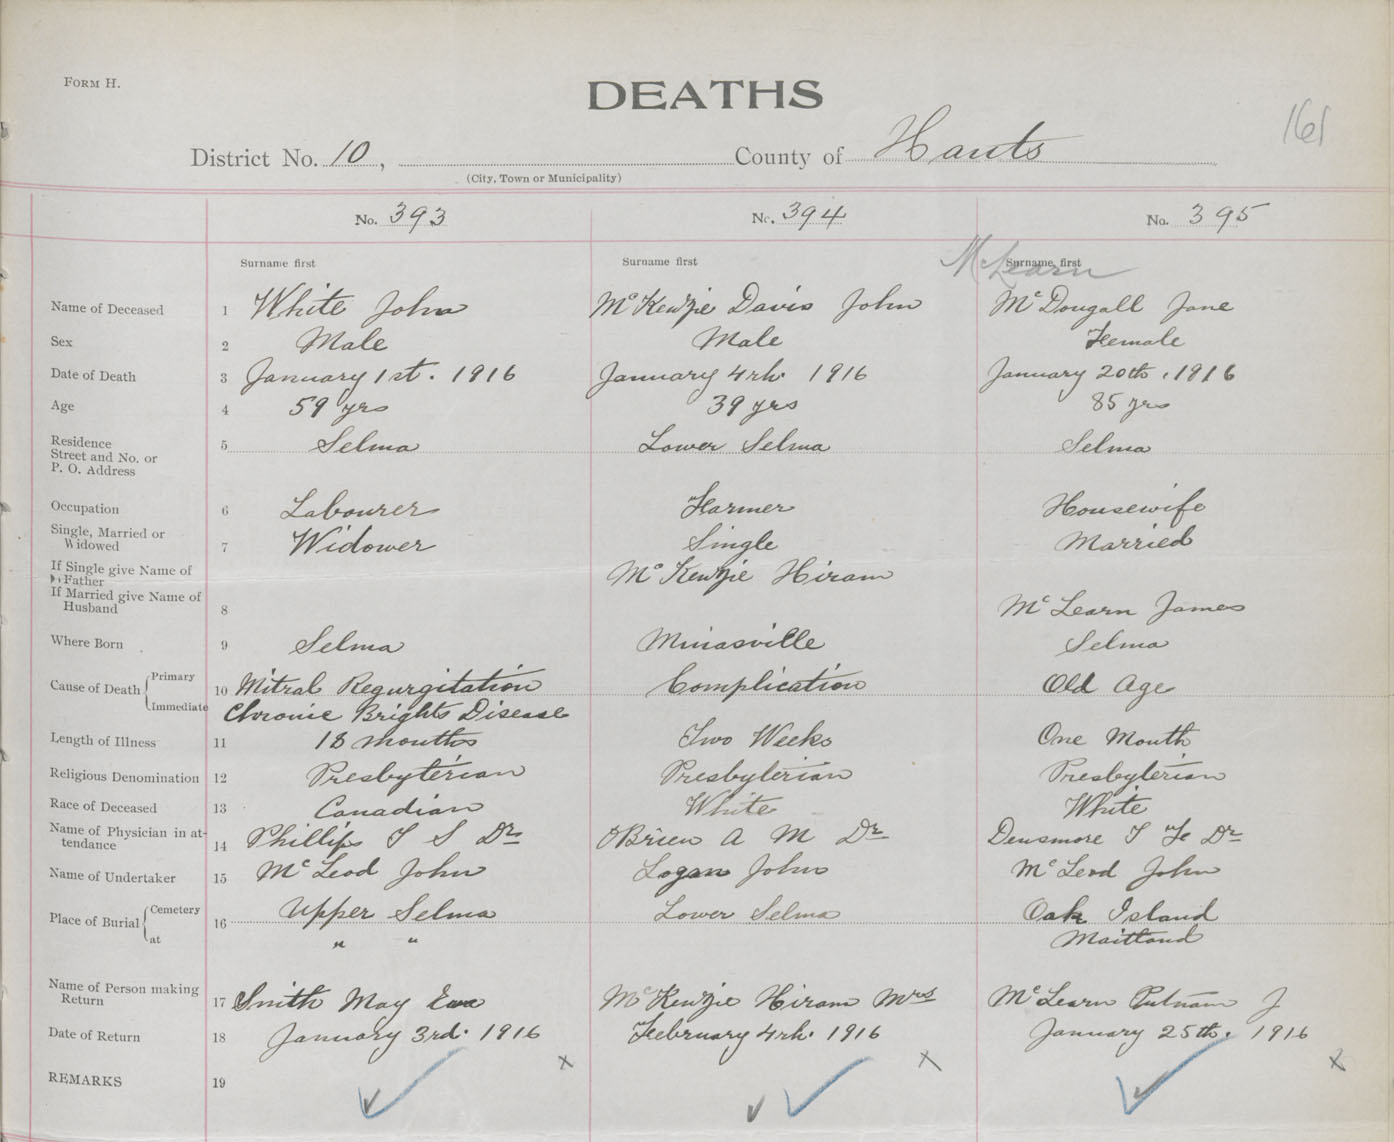 FORM H.
DEATHS
161
District No. 10, County of Hants
(City, Town or Municipality)
No. 393 No. 394 No. 395
McLearn
Surname first Surname first Surname first
Name of Deceased 1 White John McKenzie Davis John McDougall Jane
Sex 2 Male Male Female
Date of Death 3 January 1st. 1916 January 4rh. 1916 January 20th. 1916
Age 4 59 yrs 39 yrs 85 yrs
Residence
Street and No. or
P. O. Address
5 Selma Lower Selma Selma
Occupation 6 Labourer Farmer Housewife
Single, Married or
Widowed 7 Widower Single Married
If Single give Name of
Father McKenzie Hiram
If Married give Name of
Husband 8 McLearn James
Where Born 9 Selma Minasville Selma
Cause of Death Primary 10 Mitral Regurgitation Complication Old Age
Immediate Chronic Brights Disease
Length of Illness 11 18 months Two Weeks One Month
Religious Denomination 12 Presbyterian Presbyterian Presbyterian
Race of Deceased 13 Canadian White White
Name of Physician in at-
tendance 14 Phillips T S Dr O'Brien A M Dr Densmore T F Dr
Name of Undertaker 15 McLeod John Logan John McLeod John
Place of Burial Cemetery 16 Upper Selma Lower Selma Oak Island
at " " Maitland
Name of Person making
Return 17 Smith May Eva McKenzie Hiram Mrs McLearn Putnam J
Date of Return 18 January 3rd. 1916 February 4rh. 1916 January 25th. 1916
x x x
REMARKS 19